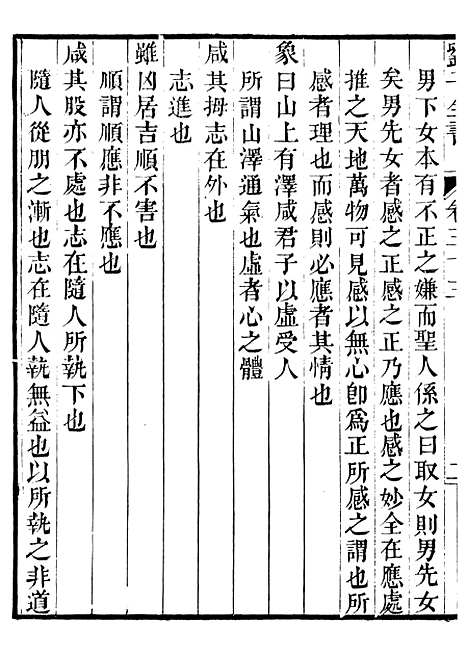 劉子全書 卷三十三
男下女本有不正之嫌而聖人係之曰取女則男先女
矣男先女者感之正感之正乃應也感之妙全在應處
推之天地萬物可見感以無心卽爲正所感之謂也所
感者理也而感則必應者其情也
象曰山上有澤咸君子以虛受人
所謂山澤通氣也虛者心之體
咸其拇志在外也
志進也
雖凶居吉順不害也
順謂順應非不應也
咸其股亦不處也志在隨人所執下也
隨人從朋之漸也志在隨人執無益也以所執之非道